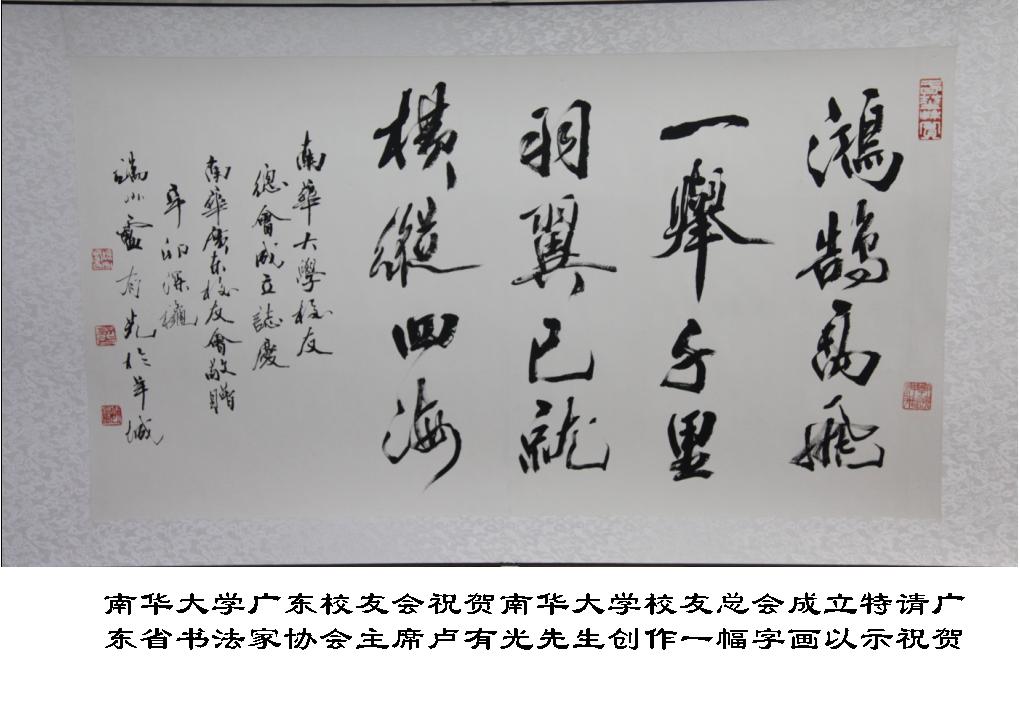 鴻鵠高飛
一舉千里
羽翼已就
橫縱四海
南華大學校友
總會成立誌慶
南華廣东校友會敬贈
辛卯深龝
端州盧有光於羊城
南华大学广东校友会祝贺南华大学校友总会成立特请广
东省书法家协会主席卢有光先生创作一幅字画以示祝贺